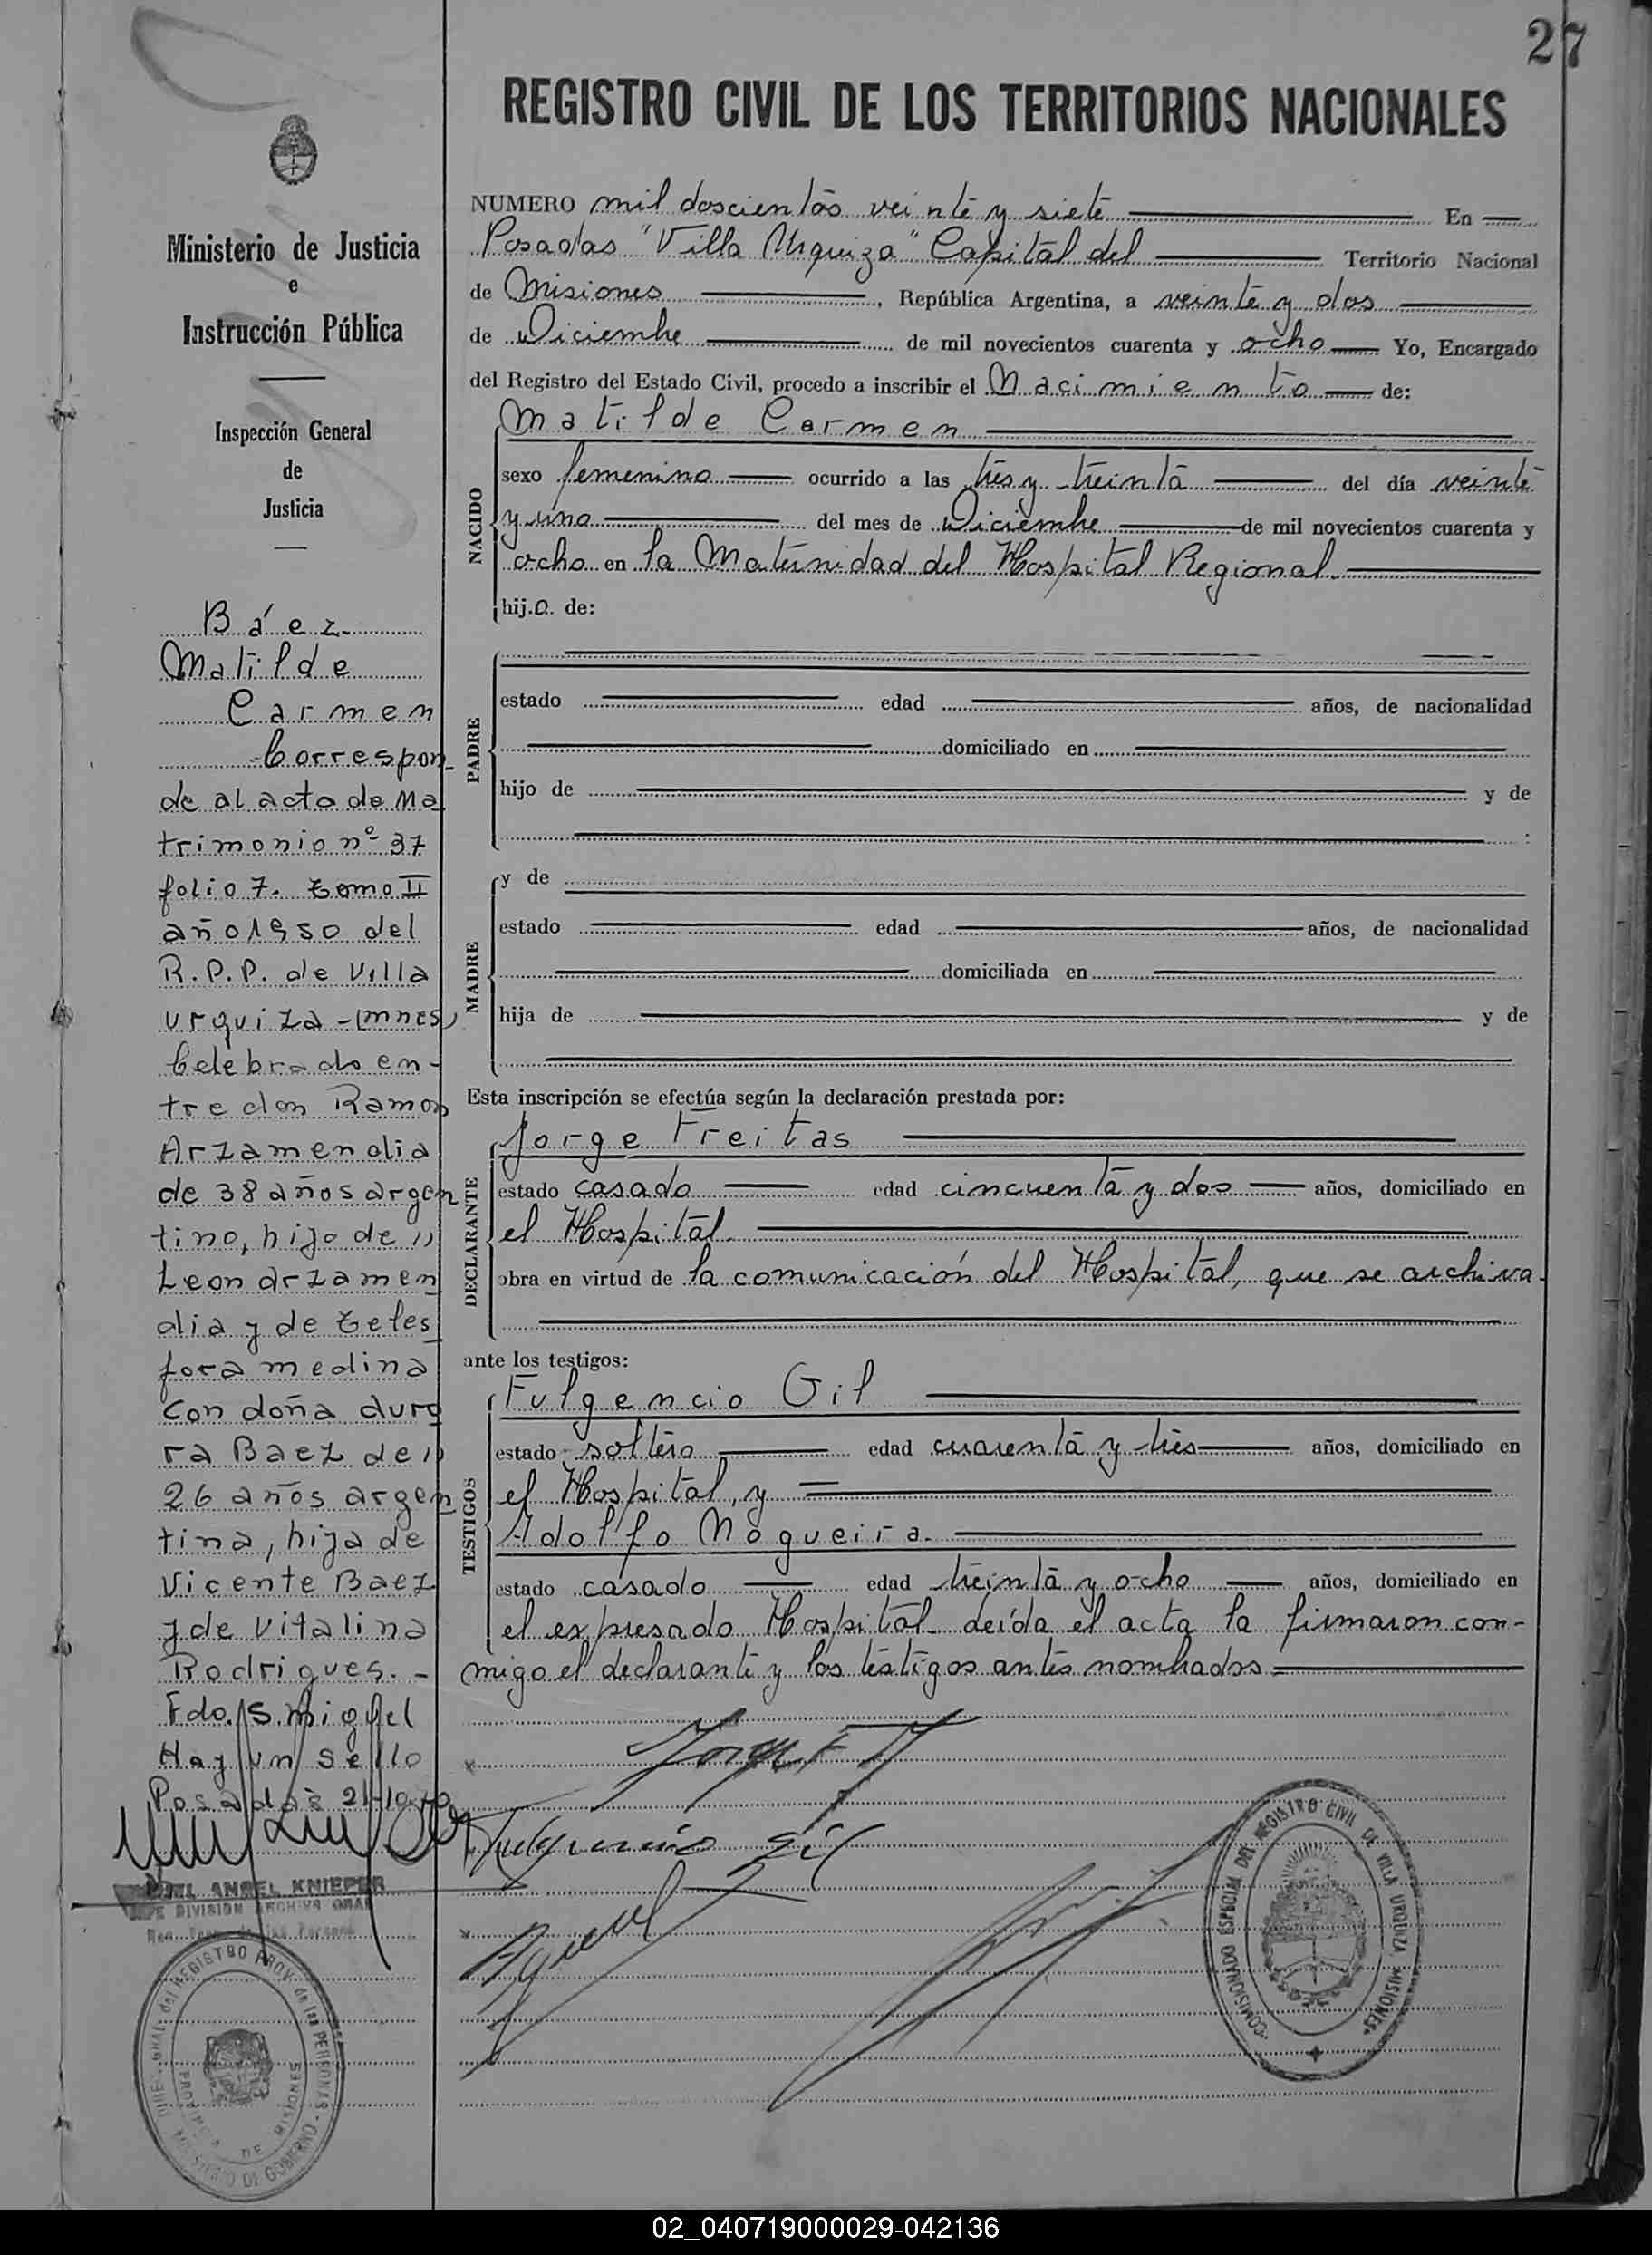 27
REGISTRO CIVIL DE LOS TERRITORIOS NACIONALES
Ministerio de Justicia
e
Instrucción Pública
Inspección General
de
Justicia
Báez
Matilde
Carmen
Correspon-
de al acta de Ma
trimonio nº 37
folio 7. tomo II
año 1950 del
R.P.P. de Villa
Urquiza - (mnes)
Celebrado en-
tre don Ramon
Arzamendia
de 38 años argen
tino, hijo de "
Leon Arzamen
dia y de Teles
fora medina
con doña auro
ra Baez de "
26 años argen
tina, hija de
Vicente Baez
y de Vitalina
Rodrigues. -
Fdo. S. Miguel
Hay un sello
Posadas 21-10-
ANGEL KNIEPER
DIVISION ARCHIVO GRAL
NUMERO mil doscientos veinte y siete En
Posadas "Villa Urquiza" Capital del Territorio Nacional
de Misiones, República Argentina, a veinte y dos
de Diciembre de mil novecientos cuarenta y ocho Yo, Encargado
del Registro del Estado Civil, procedo a inscribir el Nacimiento de:
NACIDO
Matilde Carmen
sexo femenino ocurrido a las tres y treinta del día veinte
y uno del mes de Diciembre de mil novecientos cuarenta y
ocho en la Maternidad del Hospital Regional.
hij.a. de:
PADRE
estado edad años, de nacionalidad
domiciliado en
hijo de y de
:
MADRE
y de
estado edad años, de nacionalidad
domiciliada en
hija de y de
Esta inscripción se efectúa según la declaración prestada por:
DECLARANTE
Jorge Freitas
estado casado edad cincuenta y dos años, domiciliado en
el Hospital.
obra en virtud de la comunicación del Hospital, que se archiva.
ante los testigos:
TESTIGOS
Fulgencio Gil
estado soltero edad cuarenta y tres años, domiciliado en
el Hospital, y
Adolfo Nogueira.
estado casado edad treinta y ocho años, domiciliado en
el expresado Hospital. Leída el acta la firmaron con-
migo el declarante y los testigos antes nombrados
Fulgencio Gil
COMISIONADO ESPECIAL DEL REGISTRO CIVIL DE VILLA URQUIZA MISIONES
REGISTRO PROV. de las PERSONAS
MINISTERIO DE GOBIERNO
PROVINCIA DE MISIONES
02_040719000029-042136